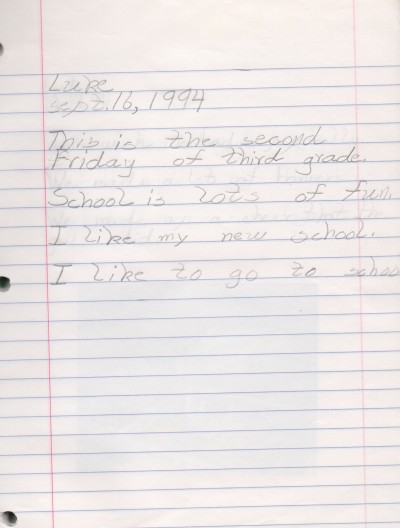 Luke
sept. 16, 1994
This is the second
Friday of third grade.
School is lots of fun.
I like my new school.
I like to go to schoo